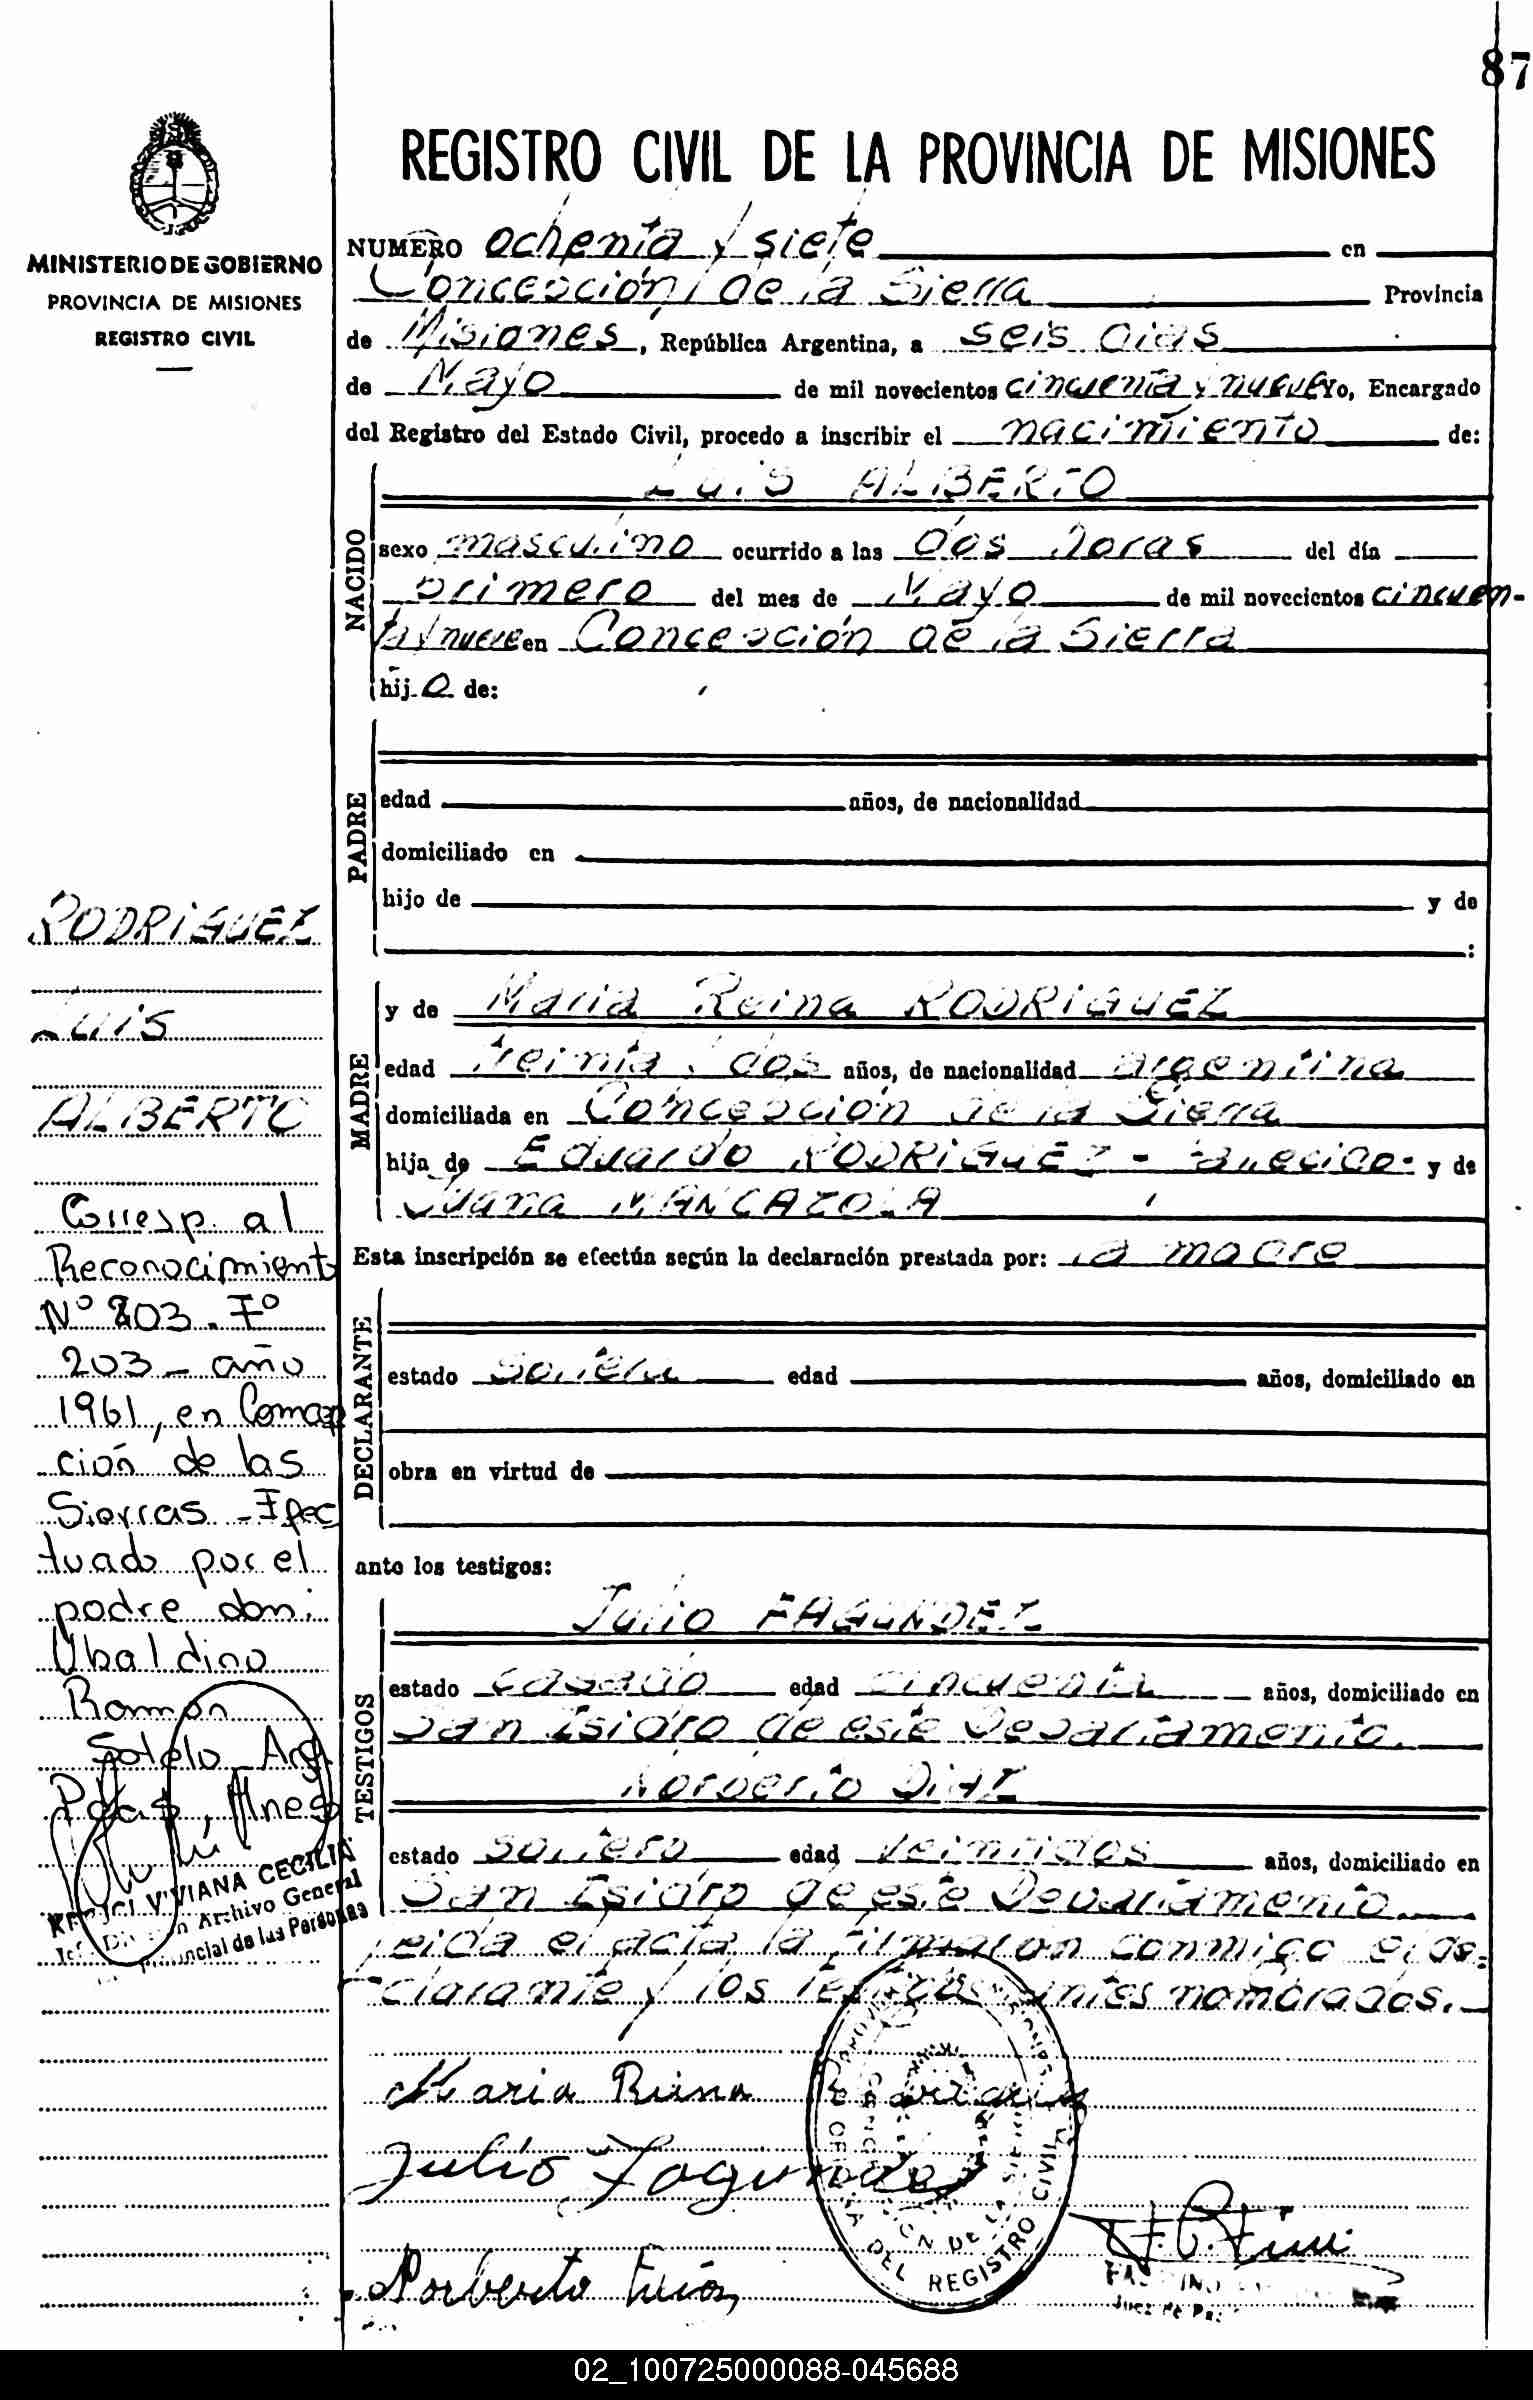 87
REGISTRO CIVIL DE LA PROVINCIA DE MISIONES
MINISTERIO DE GOBIERNO
PROVINCIA DE MISIONES
REGISTRO CIVIL
NUMERO ochenta y siete en
Concepción de la Sierra Provincia
de Misiones, República Argentina, a seis días
de Mayo de mil novecientos cincuenta y nueve Yo, Encargado
del Registro del Estado Civil, procedo a inscribir el nacimiento de:
NACIDO
Luis ALBERTO
sexo masculino ocurrido a las dos horas del día
primero del mes de Mayo de mil novecientos cincuen-
ta y nueve en Concepción de la Sierra
hijo de:
PADRE
edad años, de nacionalidad
domiciliado en
hijo de y de
:
RODRIGUEZ
Luis
ALBERTO
MADRE
y de Maria Reina RODRIGUEZ
edad treinta y dos años, de nacionalidad argentina
domiciliada en Concepción de la Sierra
hija de Eduardo RODRIGUEZ - y de
Juana
Esta inscripción se efectúa según la declaración prestada por: la madre
DECLARANTE
estado soltera edad años, domiciliado en
obra en virtud de
ante los testigos:
TESTIGOS
Julio FAGUNDEZ
estado casado edad cincuenta años, domiciliado en
San Isidro de este Departamento.
Norberto
estado soltero edad veintidos años, domiciliado en
San Isidro de este Departamento.
Leida el acta la firmaron conmigo el de-
clarante y los testigos antes nombrados.
Corresp. al
Reconocimiento
Nº 203. Fº
203 - año
1961, en
ción de las
Sierras - Efec
tuado por el
padre don:
Ubaldino
Ramón
Sotelo. Arg.
VIVIANA CECILIA
Archivo General
Provincial de las Personas
Maria Reina
Julio Fagundez
Norberto
OFICINA DEL REGISTRO CIVIL
DE LA
Juez de Paz
02_100725000088-045688